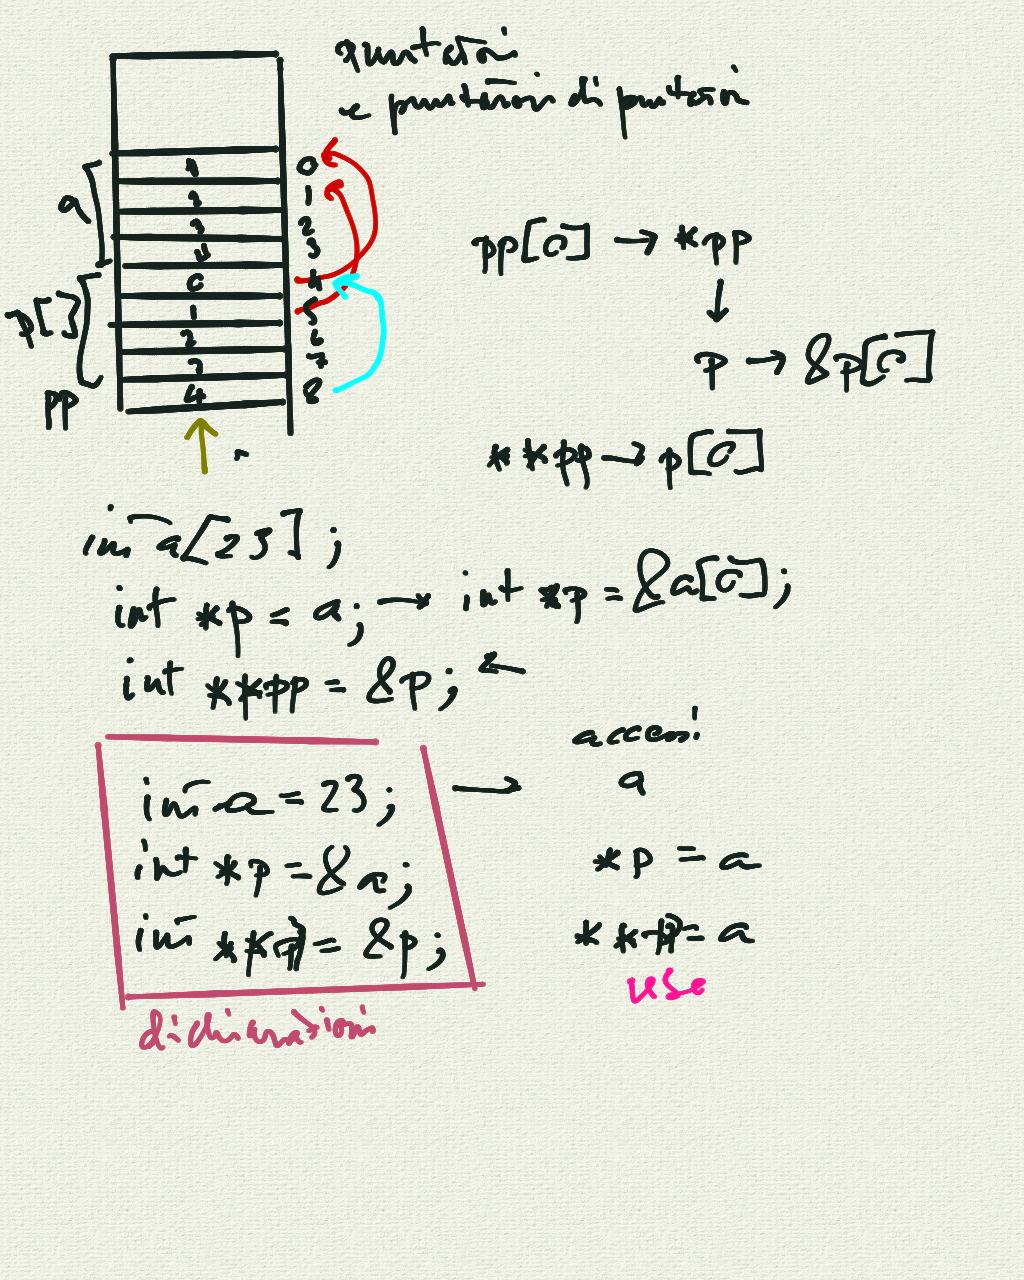 puntatori
e puntatori di puntatori
a
1
2
3
4
0
1
2
3
4
0
1
2
3
4
5
6
7
8
p[]
pp
pp[0] → *pp
↓
p → &p[0]
**pp → p[0]
int a[23];
int *p = a; → int *p = &a[0];
int **pp = &p; ←
int a = 23; →
int *p = &a;
int **pp = &p;
dichiarazioni
accessi
a
*p = a
**pp = a
use